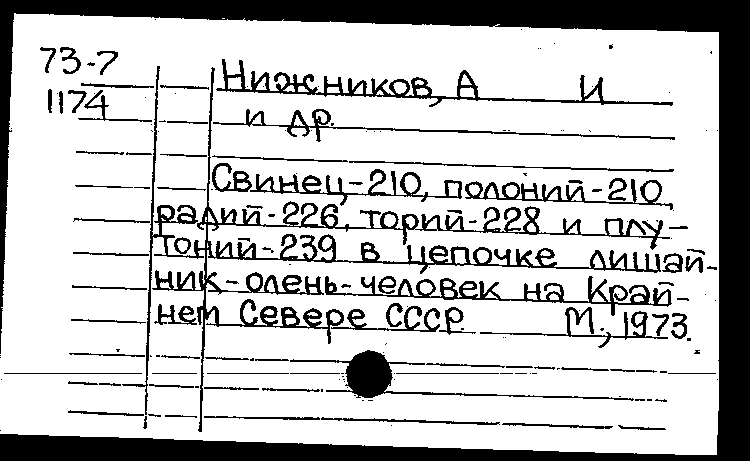 73-7
1174
Нижников, А И
и др.
Свинец-210, полоний-210,
радий-226, торий-228 и плу-
тоний-239 в цепочке лишай-
ник-олень-человек на Край-
нем Севере СССР М., 1973.